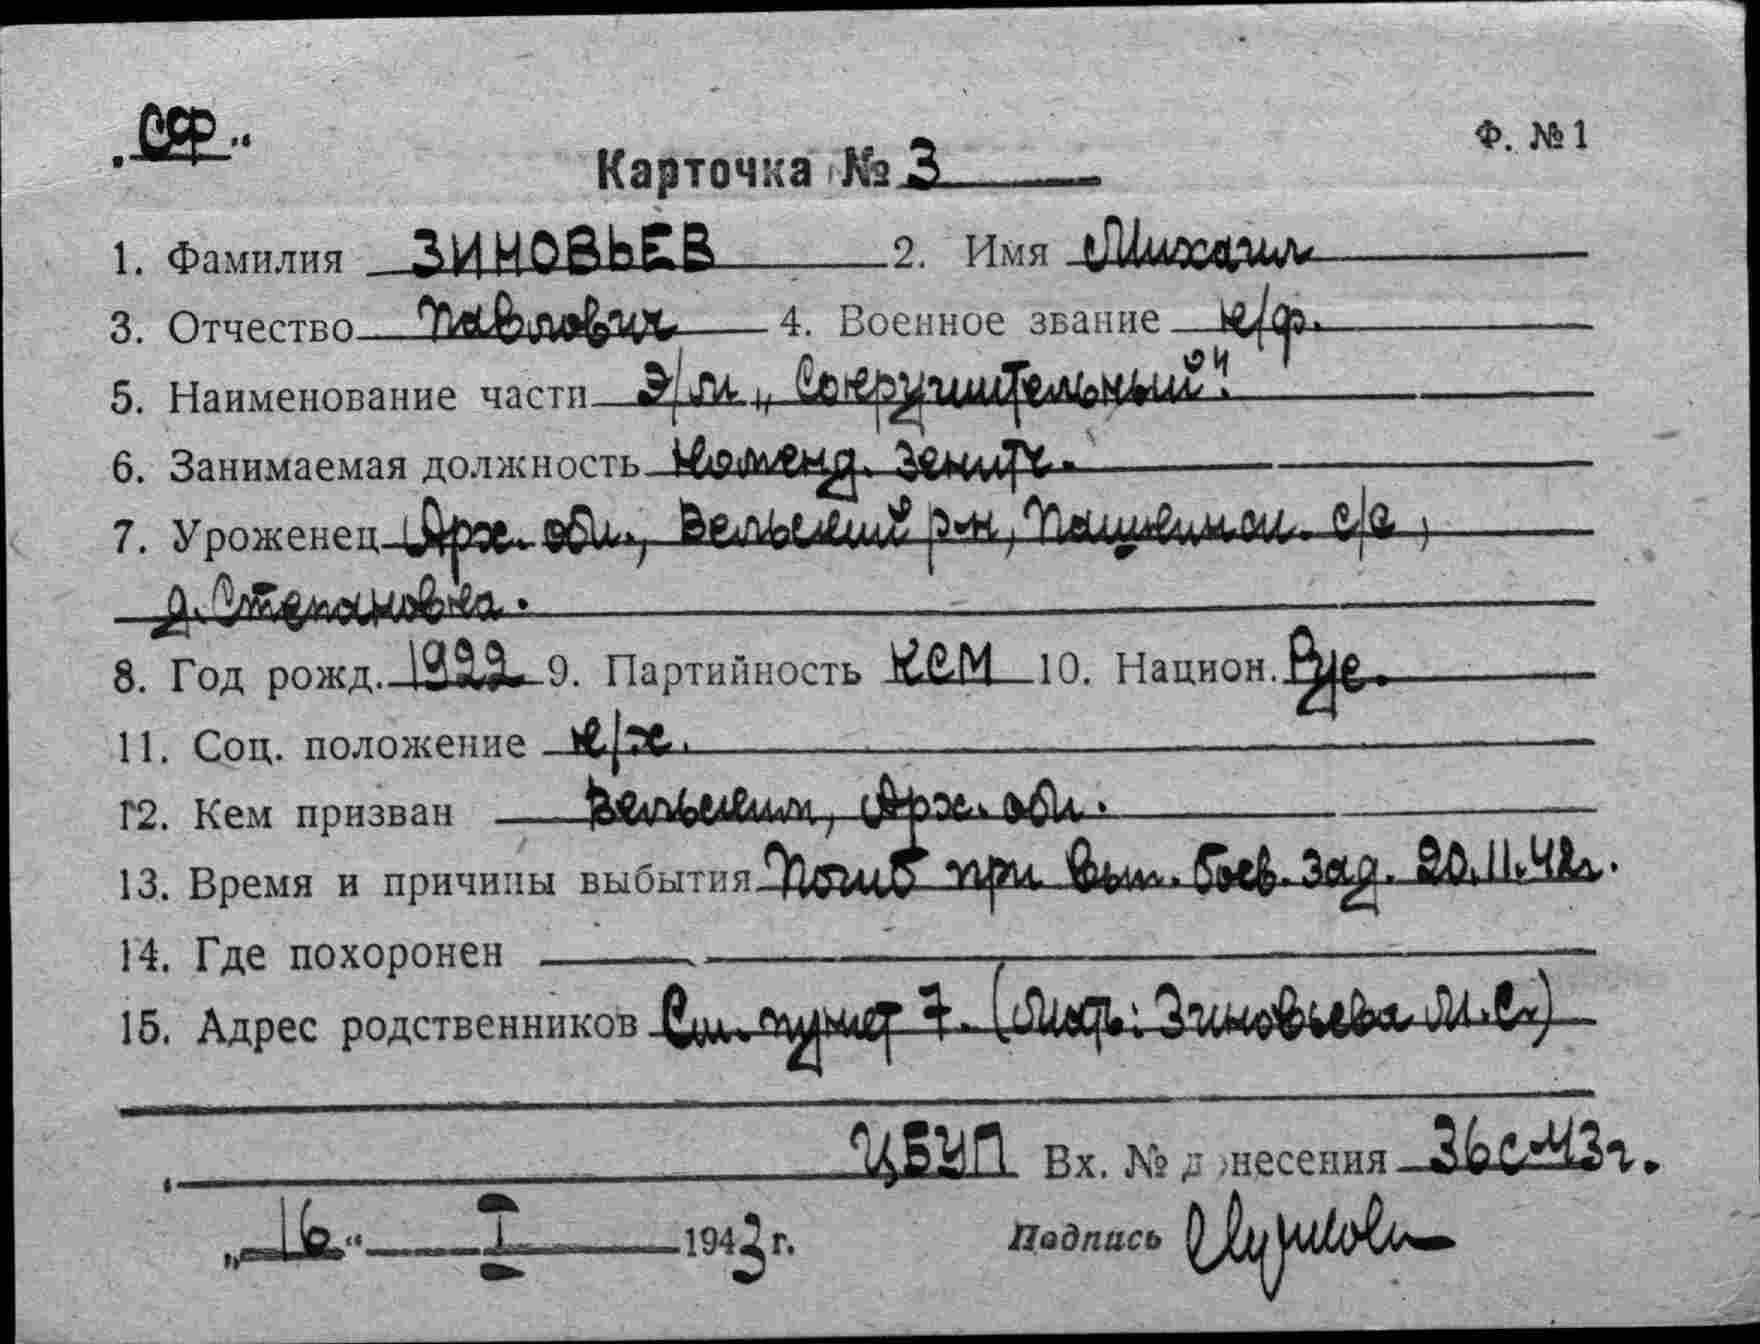 „СФ“
Ф. № 1
Карточка № 3
1. Фамилия ЗИНОВЬЕВ 2. Имя Михаил
3. Отчество Павлович 4. Военное звание к/ф.
5. Наименование части Э/м „Сокрушительный".
6. Занимаемая должность Команд. зенитч.
7. Уроженец Арх. обл., Вельский р-н, Пашкинск. с/с,
д. Степановка.
8. Год рожд. 1922 9. Партийность КСМ 10. Национ. Рус.
11. Соц. положение к/х.
12. Кем призван Вельским, Арх. обл.
13. Время и причины выбытия Погиб при вып. боев. зад. 20.11.42г.
14. Где похоронен
15. Адрес родственников См. пункт 7. (Мать: Зиновьева М. С.)
ЦБУП Вх. № донесения 36с-43г.
„16“ I 1943 г. Подпись